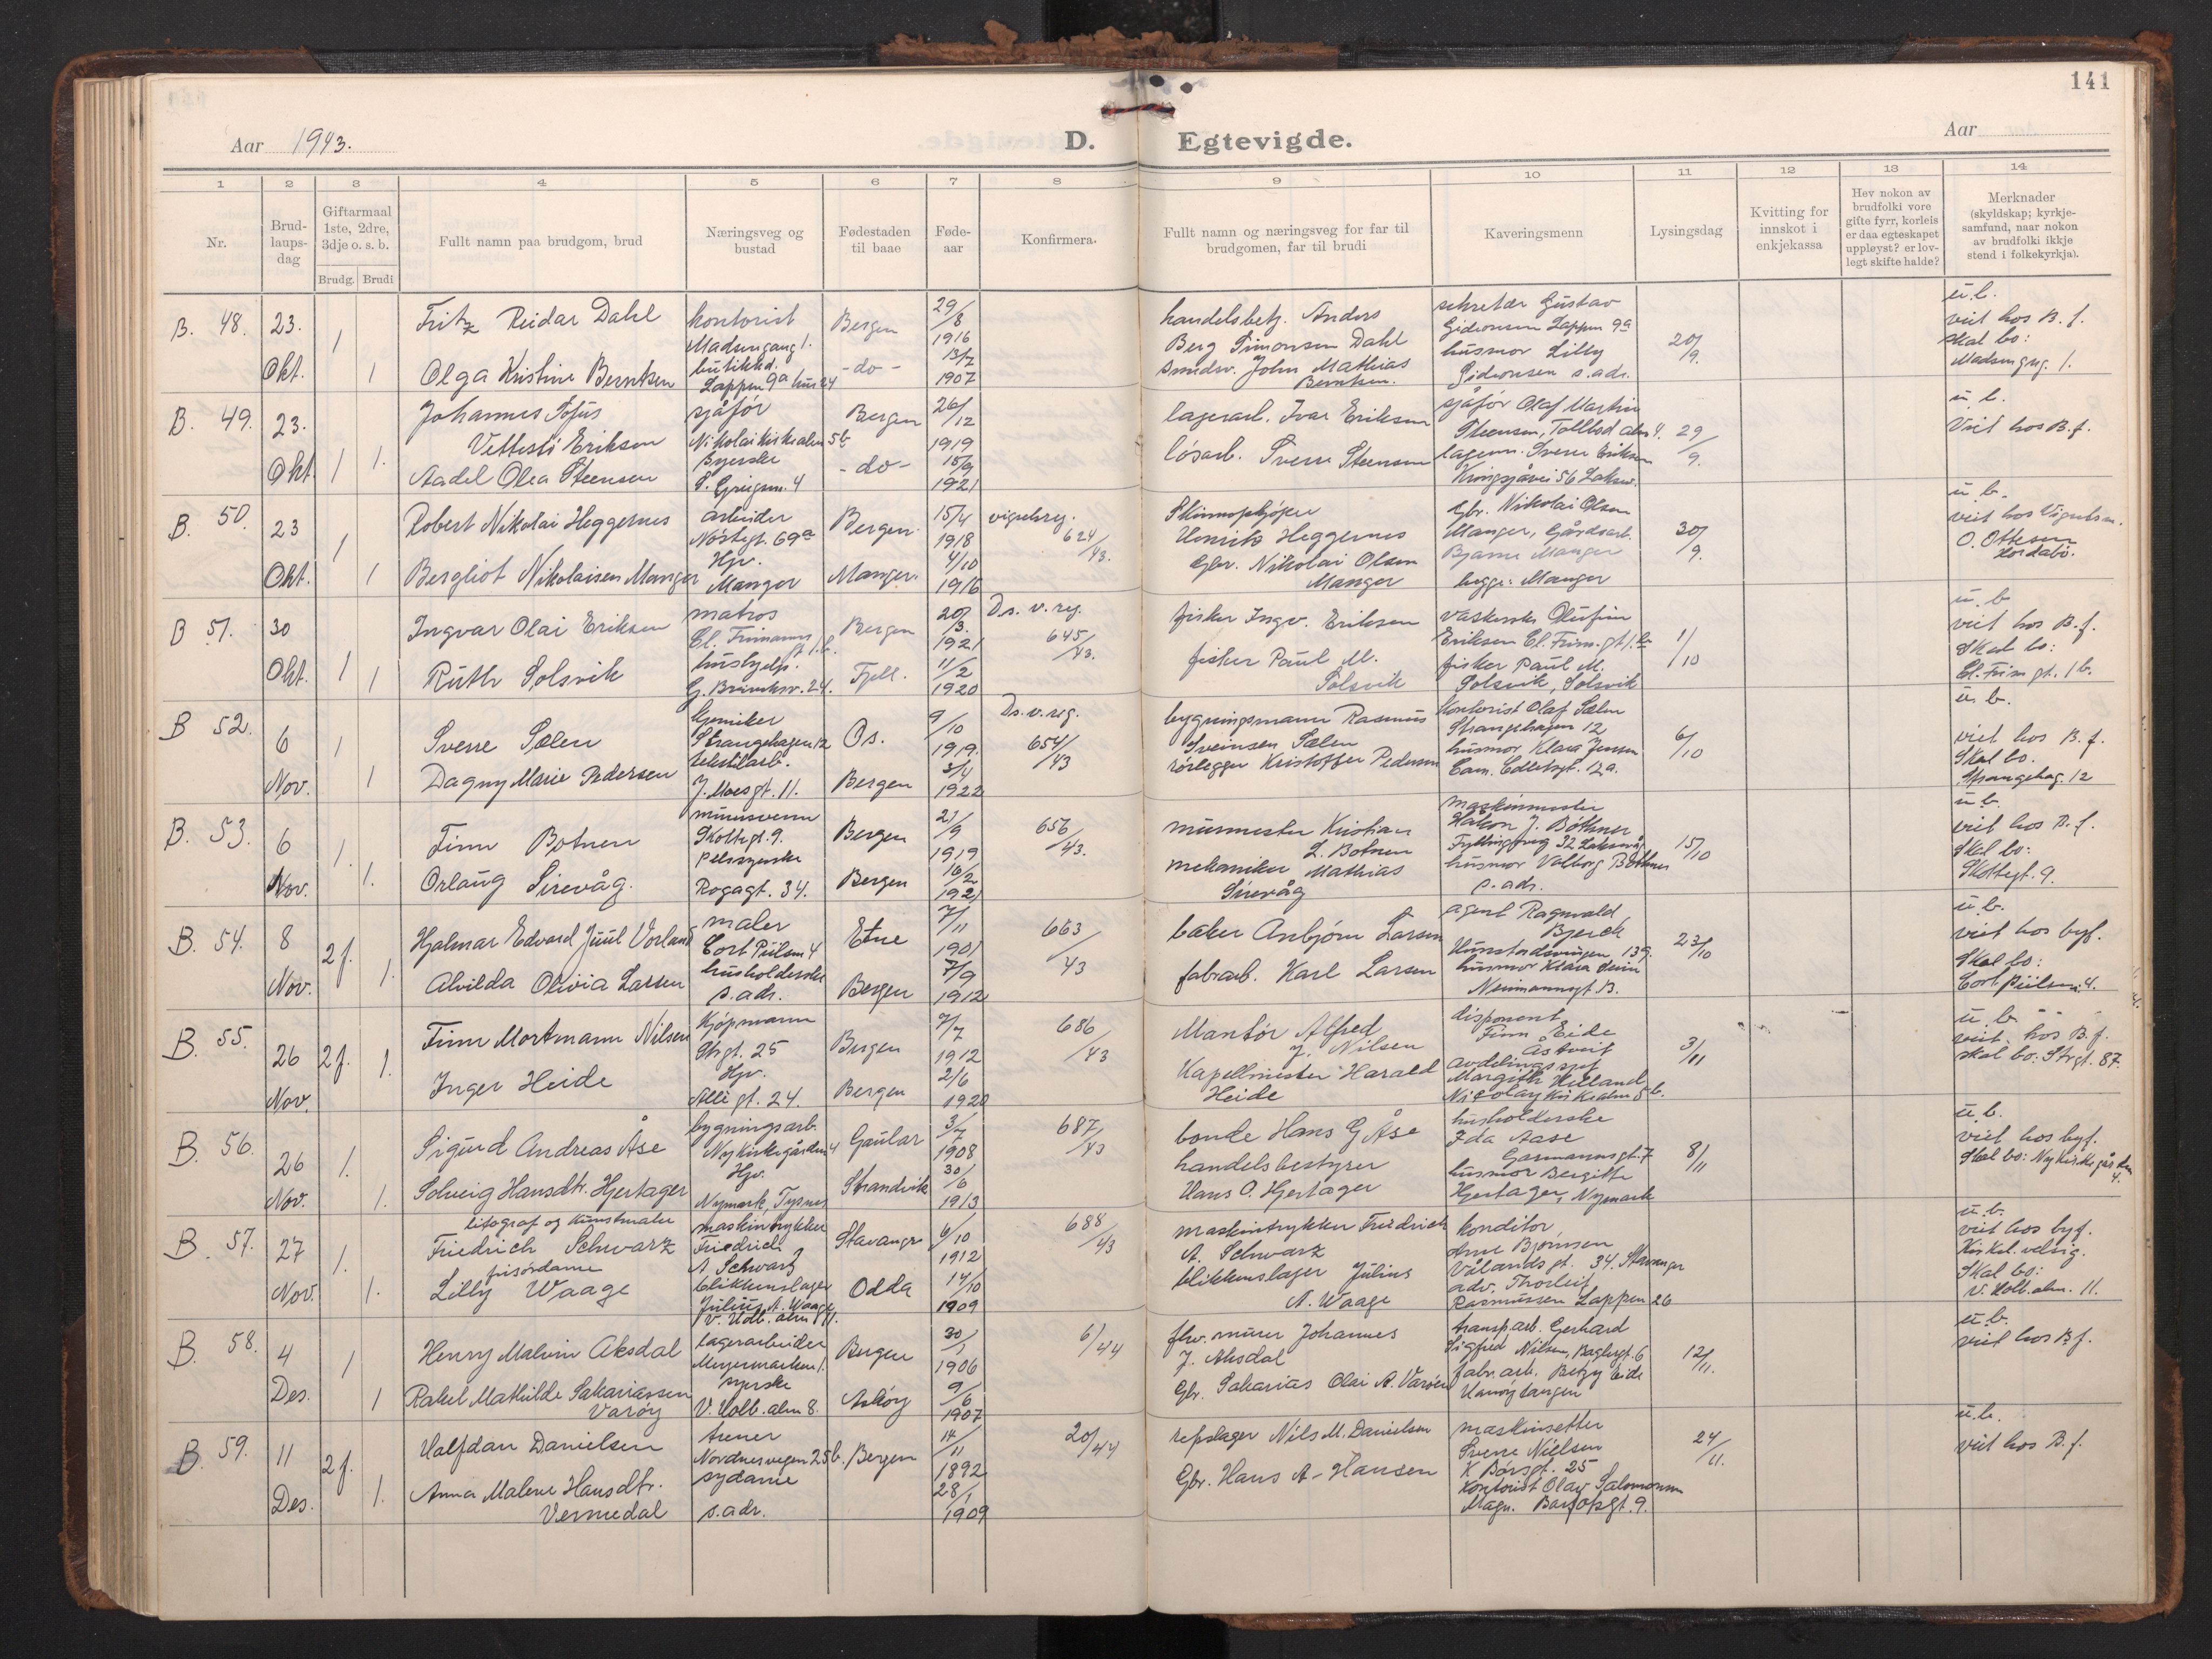 141
Aar 1943.
D. Egtevigde.
Aar
1 2 3 4 5 6 7 8 9 10 11 12 13 14
Nr.
Brud-
laups-
dag
Giftarmaal
1ste, 2dre,
3dje o. s. b.
Brudg. Brudi
Fullt namn paa brudgom, brud
Næringsveg og
bustad
Fødestaden
til baae
Føde-
aar
Konfirmera.
Fullt namn og næringsveg for far til
brudgomen, far til brudi
Kaveringsmenn
Lysingsdag
Kvitting for
innskot i
enkjekassa
Hev nokon av
brudfolki vore
gifte fyrr, korleis
er daa egteskapet
uppløyst? er lov-
legt skifte halde?
Merknader
(skyldskap; kyrkje-
samfund, naar nokon
av brudfolki ikkje
stend i folkekyrkja).
B. 48. 23. Okt. 1 1
Fritz Reidar Dahl
Olga Kristine Berntsen
kontorist
Madsengang 1.
butikkd.
Lappen 9a hus 24
Bergen
-do-
29/8 1916
13/7 1907
handelsbetj. Anders
Berg Simonsen Dahl
smedsv. John Mathias
Berntsen.
sekretær Gustav
Gidionsen Lappen 9a
husmor Lilly
Gidionsen s. adr.
20/9.
u.b.
viet hos B.f.
skal bo:
Madsengng. 1.
B. 49. 23. Okt. 1 1.
Johannes Sofus
Vettesti Eriksen
Aadel Olea Steensen
sjåfør
Nikolaikirkealm 5b
Syerske
Bergen
-do-
26/12 1919
15/9 1921
lagerarb. Ivar Eriksen
løsarb. Sverre Steensen
sjåfør Olaf Martin
Steensen, Tollbod alm 4.
lagerm. Sverre Eriksen
Kringsjåvei 56 Laksev.
29/9.
u.b.
Viet hos B.f.
B. 50. 23 Okt. 1 1
Robert Nikolai Heggernes
Bergliot Nikolaisen Manger
arbeider
Nøstegt. 69a
Hjv.
Manger
Bergen
Manger.
15/4 1918
4/10 1916
624/43.
Henrik Heggernes
Gbr. Nikolai Olsen
Manger
Gbr. Nikolai Olsen
Manger, Gårdsarb.
Bjarne Manger
begge: Manger
30/9.
u.b.
viet hos Vigselsm.
O. Ottesen
Hordabø.
B 51. 30 Okt. 1 1
Ingvar Olai Eriksen
Ruth Solsvik
matros
Cl. Frimanns gt 1.b.
hushjelp.
Bergen
Fjell.
20/3. 1921
11/2 1920
Ds. v. reg.
645/43.
fisker Ingv. Eriksen
fisker Paul M.
Solsvik
vaskerske Olufine
Eriksen Cl. Frim. gt 1.b
fisker Paul M.
Solsvik, Solsvik
1/10
u.b.
viet hos B.f.
Skal bo:
Cl. Frim gt. 1b.
B 52. 6 Nov. 1 1
Sverre Sælen
Dagny Marie Pedersen
kjemiker
Strangehagen 12
tekstilarb.
J. Moes gt. 11.
Os.
Bergen
9/10 1919.
3/4 1922
Ds. v. reg.
654/43
bygningsmann Rasmus
Sveinsen Sælen
rørlegger Kristoffer Pedersen
Kontorist Olaf Sælen
Strangehagen 12
husmor Klara Jensen
6/10
u.b.
viet hos B.f.
Skal bo.
Strangehag. 12
B. 53. 6 Nov. 1. 1.
Finn Botnen
Orlaug Sirevåg.
murersvenn
Skottegt. 9.
pelssyerske
Rogagt. 34.
Bergen
Bergen
21/9 1919
16/2 1921
656/43.
murmester Kristian
L. Botnen
mekaniker Mathias
Sirevåg
maskinmester
Håkon J. Bøthner
Fyllingsveg 32 Laksevåg
husmor Valborg Bøthner
s. adr.
15/10
u.b.
viet hos B.f.
Skal bo:
Skottegt. 9.
B. 54. 8 Nov. 2f. 1.
Hjalmar Edvard Juul Vorland
Alvilda Olivia Larsen
maler
Cort Piilsm 4
husholderske
s. adr.
Etne
Bergen
7/11 1901
7/9 1912
663/43
baker Anbjørn Larsen
fabrarb. Karl Larsen
agent Ragnvald
Bjerck
139.
husmor Klara
Neumannsgt. 13.
23/10
u.b.
viet hos byf.
Skal bo:
Cort Piilsm. 4.
B. 55. 26 Nov. 2f. 1.
Finn Mortmann Nilsen
Inger Heide
Kjøpmann
Strgt. 25
Hjv.
Allégt. 24.
Bergen
Bergen
7/7 1912
2/6 1920
686/43
Mantør Alfred
J. Nilsen
Kapellmester Harald
Heide
disponent
Finn Eide
Åstveit
avdelingssjef
Margith Helland
Nicolaykirkealm 5b.
3/11
u.b.
viet. hos B.f.
skal bo: Strgt. 87.
B. 56. 26 Nov. 1. 1.
Sigurd Andreas Åse
Solveig Hansdtr. Hjertager
bygningsarb.
Nykirkegården 4
Hjv.
Nymark, Tysnes
Gaular
Strandvik
3/7 1908
30/6 1913
687/43
bonde Hans G Åse
handelsbestyrer
Hans O. Hjertager
husholderske
Ida Aase
Garmannsgt. 7
husmor Bergitte
Hjertager, Nymark
8/11
u.b.
viet hos byf.
Skal bo: Nykirkegården
4.
B. 57. 27 Nov. 1. 1.
litograf og kunstmaler
Friedrich Schwarz
frisørdame
Lilly Waage
maskintrykker
Friedrich
A Schwarz
blikkenslager
Julius A. Waage
V. Holb. alm 11.
Stavanger
Odda
6/10 1912
14/10 1909
688/43
maskintrykker Friedrich
A. Schwarz
blikkenslager Julius
A. Waage
konditor
Arne Bjørnsen
Vålandsgt. 34. Stavanger
adv. Thorleif
Rasmussen Lappen 26
u.b.
viet hos byf.
Kirkel. velsig.
Skal bo:
V. Holb. alm. 11.
B. 58. 4 Des. 1 1
Henry Malvin Aksdal
Rakel Mathilde Sakariassen
Varøy
lagerarbeider
Meyermarken 1.
syerske
V. Holb. alm 8.
Bergen
Askøy
30/1 1906
9/6 1907
6/44
fhv. murer Johannes
J. Aksdal
Gbr. Sakarias Olai A. Varøen
transp.arb. Gerhard
Sigfred Nilsen, Baglergt. 6
fabr.arb. Betzy Eide
Hanøytangen
12/11.
u.b.
viet hos B.f.
B. 59. 11 Des. 2f. 1.
Halfdan Danielsen
Anna Malene Hansdtr.
Vermedal
trener
Nordnesvegen 25b.
sydame
s. adr.
Bergen
14/11 1892
28/1 1909
20/44
repslager Nils M. Danielsen
Gbr. Hans A - Hansen
maskinsetter
Sverre Nielsen
K Børsgt. 25
kontorist Olav Salomonsen
Magn. Barfotsgt. 9.
24/11.
u.b.
viet hos B.f.